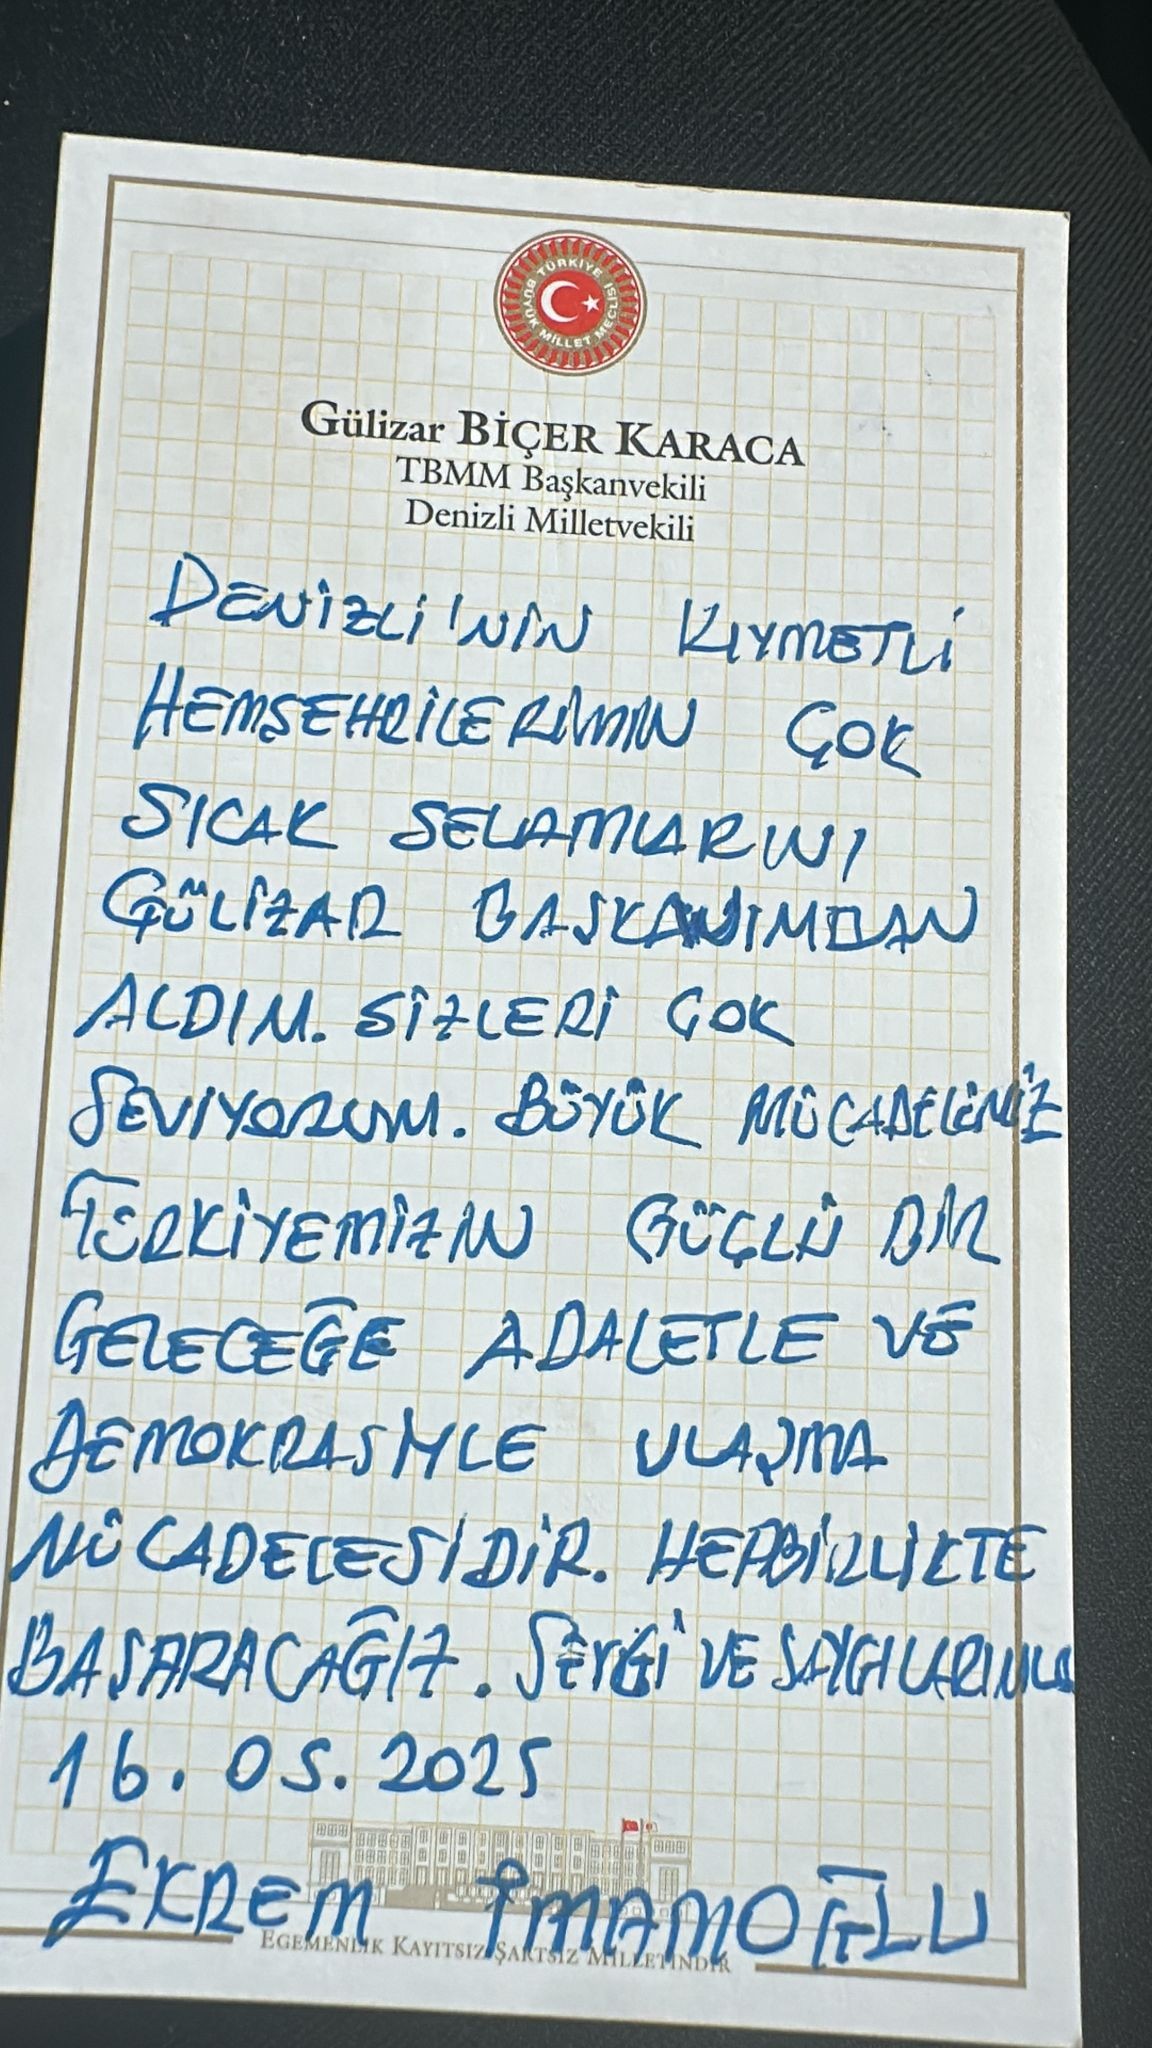 TÜRKİYE BÜYÜK MİLLET MECLİSİ
Gülizar BİÇER KARACA
TBMM Başkanvekili
Denizli Milletvekili
DENİZLİ'NİN KIYMETLİ
HEMŞEHRİLERİMİN ÇOK
SICAK SELAMLARINI
GÜLİZAR BAŞKANIMDAN
ALDIM. SİZLERİ ÇOK
SEVİYORUM. BÜYÜK MÜCADELEMİZ
TÜRKİYEMİZİN GÜÇLÜ BİR
GELECEĞE ADALETLE VE
DEMOKRASİYLE ULAŞMA
MÜCADELESİDİR. HEPBİRLİKTE
BAŞARACAĞIZ. SEVGİ VE SAYGILARIMLA
16.05.2025
EKREM İMAMOĞLU
EGEMENLİK KAYITSIZ ŞARTSIZ MİLLETİNDİR